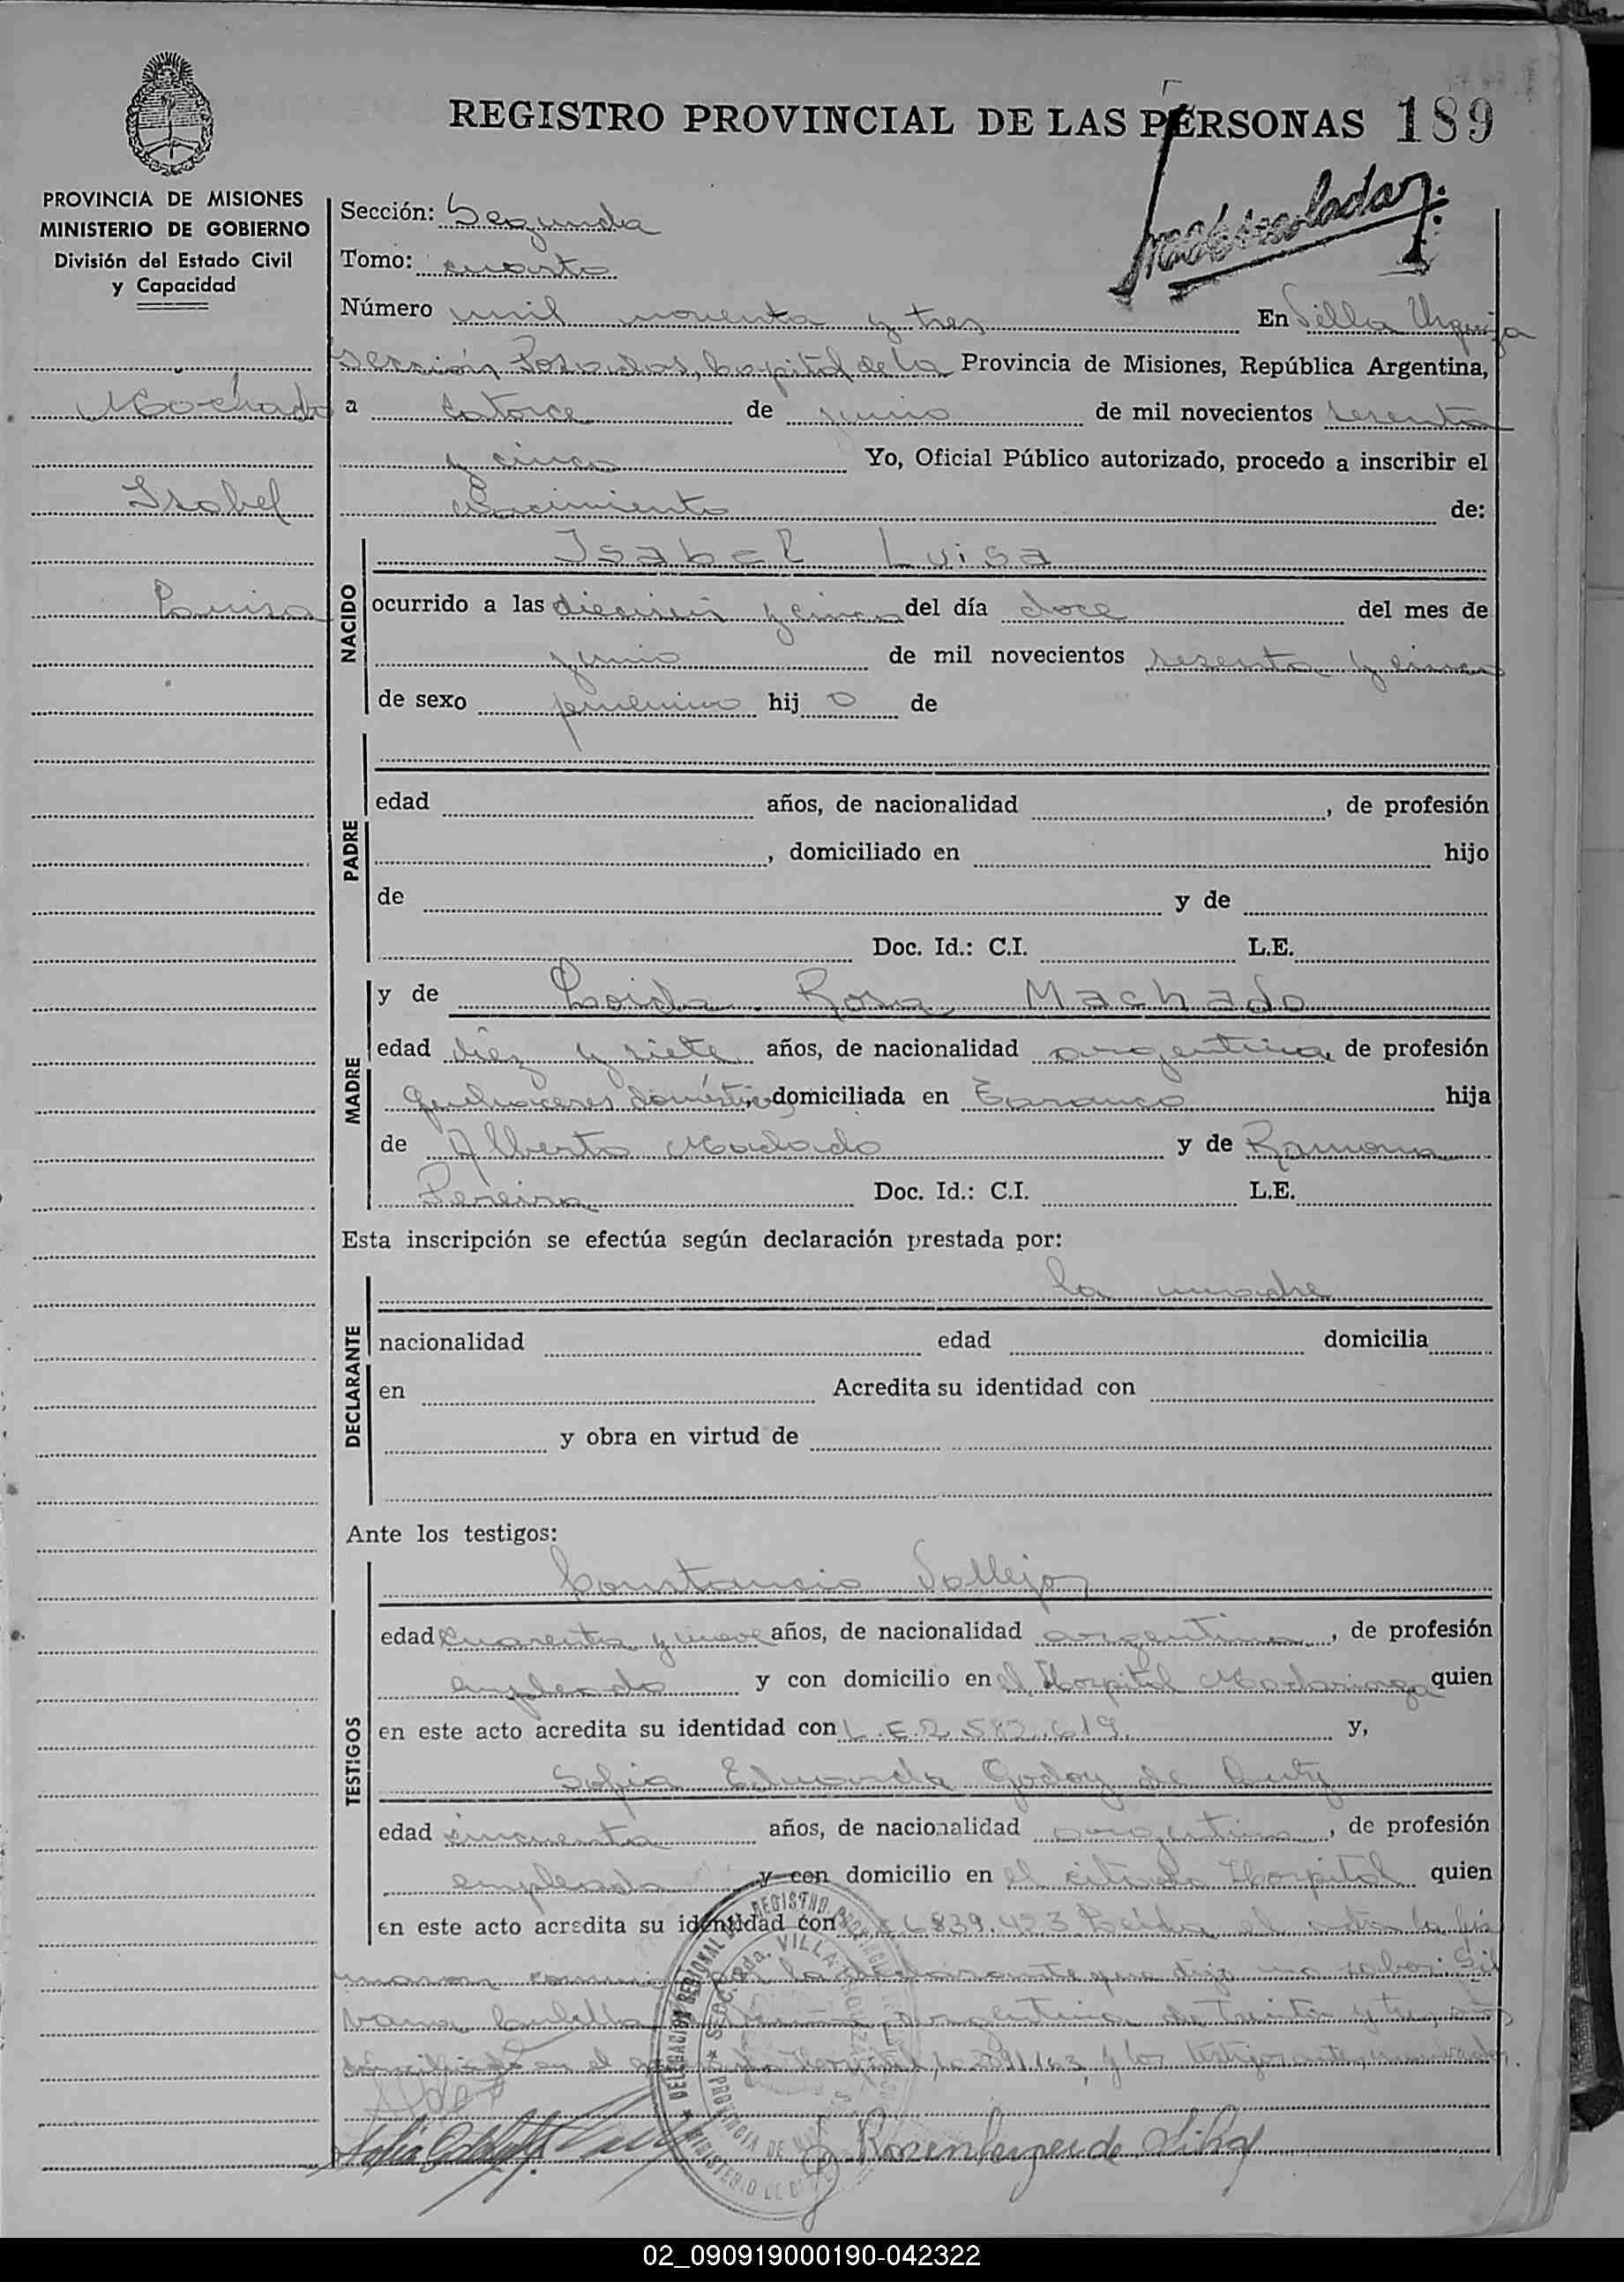 REGISTRO PROVINCIAL DE LAS PERSONAS 189
PROVINCIA DE MISIONES
MINISTERIO DE GOBIERNO
División del Estado Civil
y Capacidad
Matriculada
Machado
Isabel
Luisa
Sección: Segunda
Tomo: cuarto
Número mil noventa y tres En Villa Urquiza
Sección Posadas, Capital de la Provincia de Misiones, República Argentina,
a catorce de junio de mil novecientos sesenta
y cinco Yo, Oficial Público autorizado, procedo a inscribir el
Nacimiento de:
NACIDO
Isabel Luisa
ocurrido a las y cinco del día doce del mes de
junio de mil novecientos sesenta y cinco
de sexo femenino hij a de
PADRE
edad años, de nacionalidad , de profesión
, domiciliado en hijo
de y de
Doc. Id.: C.I. L.E.
MADRE
y de Rosa Machado
edad diez y siete años, de nacionalidad argentina, de profesión
quehaceres domésticos, domiciliada en hija
de Alberto Machado y de Ramona
Pereira Doc. Id.: C.I. L.E.
Esta inscripción se efectúa según declaración prestada por:
DECLARANTE
la madre
nacionalidad edad domicilia
en Acredita su identidad con
y obra en virtud de
Ante los testigos:
TESTIGOS
Constancio Vallejos
edad cuarenta y nueve años, de nacionalidad argentina, de profesión
empleado y con domicilio en el Hospital Madariaga quien
en este acto acredita su identidad con L.E. 2.582.619. y,
Sofia Eduarda Godoy de
edad cincuenta años, de nacionalidad argentina, de profesión
empleada y con domicilio en el citado Hospital quien
en este acto acredita su identidad con 6839.423 Leída el acta la fir
maron la declarante que dijo no saber:
argentina, de treinta y tres años
domiciliada en el Hospital, y los testigos antes nombrados.
Rosenberger de Silva
02_090919000190-042322